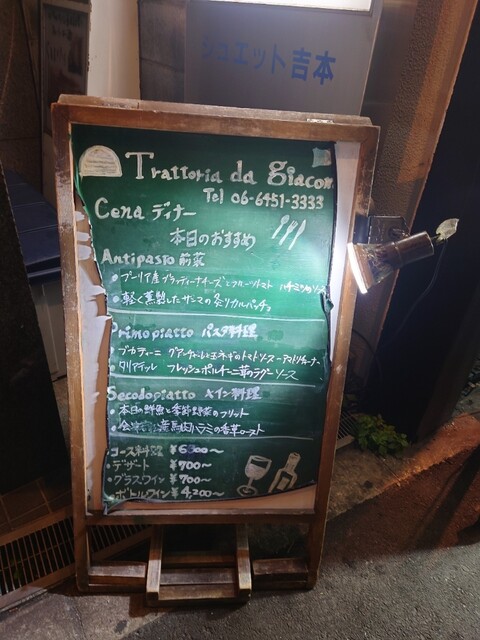 ジュエット吉本
Trattoria da Giacom
Tel 06-6451-3333
Cena ディナー
本日のおすすめ
Antipasto 前菜
・プーリア産ブラッティーナチーズとフルーツトマト ハチミツソース
・軽く薫製したサンマの炙りカルパッチョ
Primo piatto パスタ料理
・ブカティーニ グアンチャーレと玉ネギのトマトソース アマトリチャーナ
・タリアテッレ フレッシュポルチーニ茸のラグーソース
Secodo piatto メイン料理
・本日の鮮魚と季節野菜のフリット
・会津産馬肉ハラミの香草ロースト
・コース料理 ¥6300～
・デザート ¥700～
・グラスワイン ¥700～
・ボトルワイン ¥4,200～